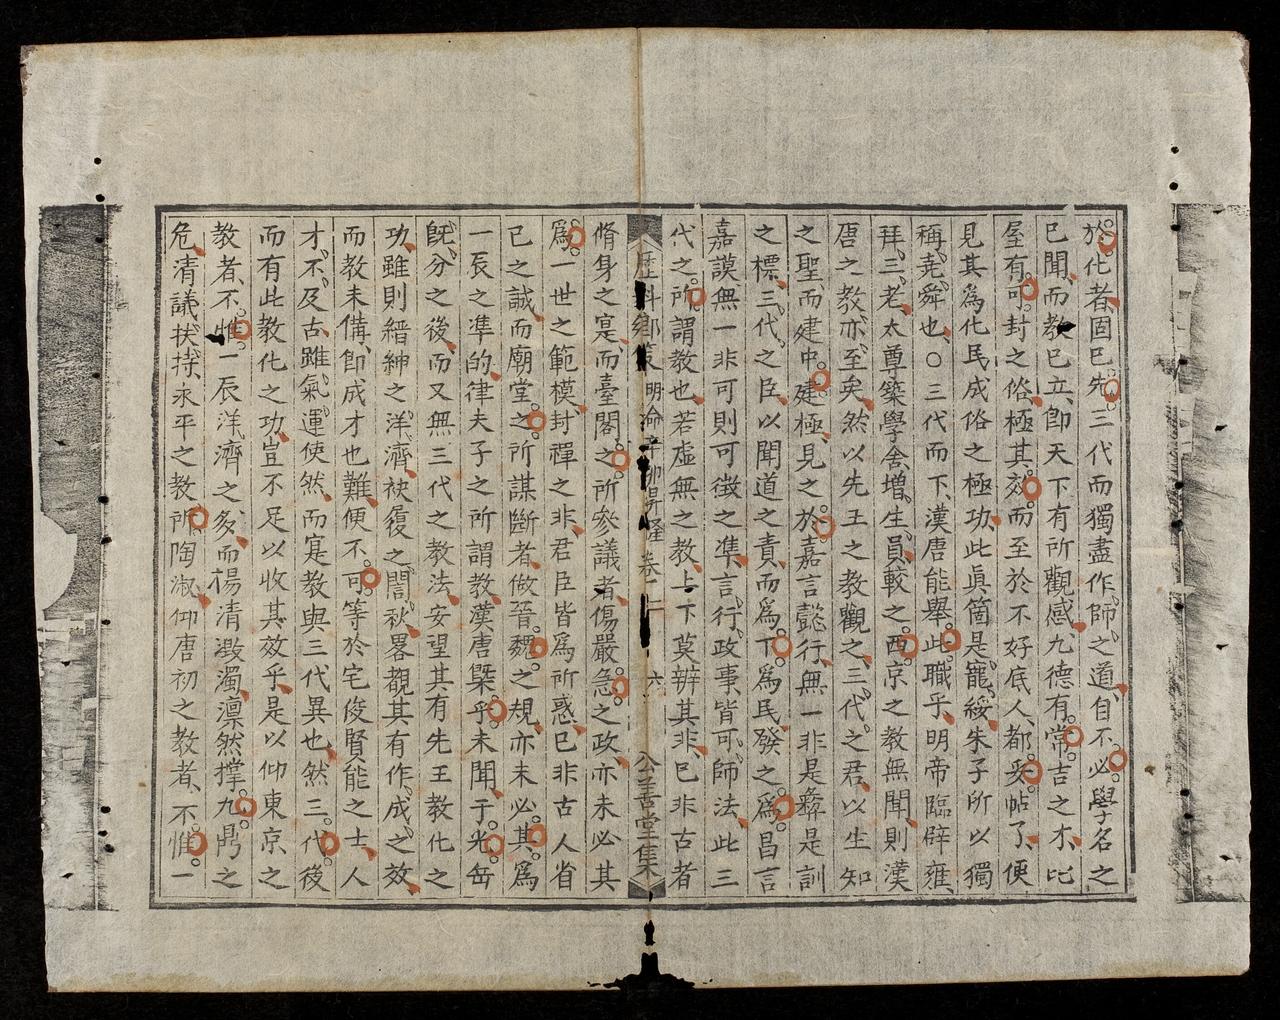 於化者固已先三代而獨盡作師之道自不必學名之
已聞而教已立卽天下有所觀感九德有常吉之才比
屋有可封之俗極其效而至於不好底人都妥帖了便
見其爲化民成俗之極功此眞箇是寵綏朱子所以獨
稱堯舜也〇三代而下漢唐能舉此職乎明帝臨辟雍
拜三老太尊築學舍增生員較之西京之教無聞則漢
唐之教亦至矣然以先王之教觀之三代之君以生知
之聖而建中建極見之於嘉言懿行無一非是彝是訓
之標三代之臣以聞道之責而爲下爲民發之爲昌言
嘉謨無一非可則可徵之準言行政事皆可師法此三
代之所謂教也若虛無之教上下莫辨其非已非古者
歷科鄕策 明淪 卷一 六 公善堂集
脩身之寔而臺閣之所參議者傷嚴急之政亦未必其
爲一世之範模封禪之非君臣皆爲所惑已非古人省
己之誠而廟堂之所謀斷者做晉魏之規亦未必其爲
一辰之準的律夫子之所謂教漢唐槩乎未聞于光岳
旣分之後而又無三代之教法安望其有先王教化之
功雖則縉紳之洋濟袂履之誾秋畧觀其有作成之效
而教未備卽成才也難便不可等於宅俊賢能之士人
才不及古雖氣運使然而寔教與三代異也然三代後
而有此教化之功豈不足以收其效乎是以仰東京之
教者不惟一辰洋濟之多而楊清激濁凛然撑九鼎之
危清議扶持永平之教所陶淑仰唐初之教者不惟一